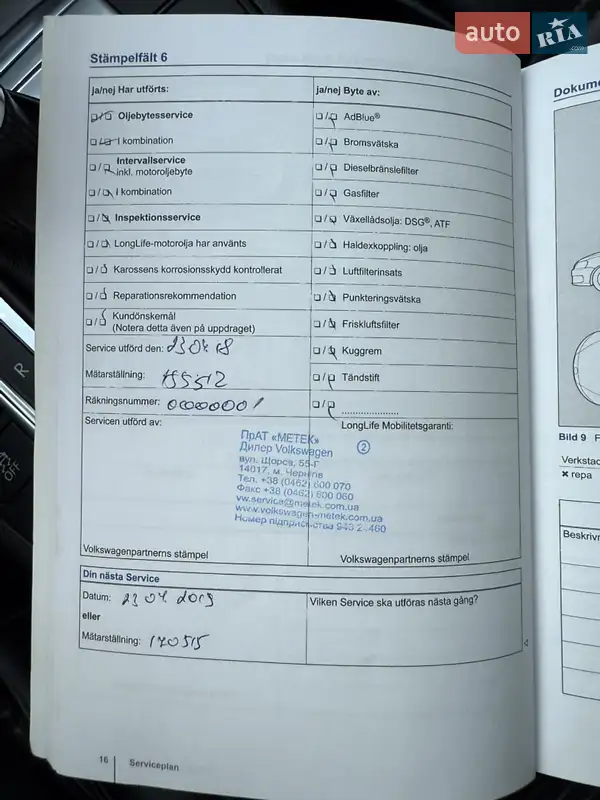 auto RIA .com
Stämpelfält 6
ja/nej Har utförts:
ja/nej Byte av:
Oljebytesservice
AdBlue®
I kombination
Bromsvätska
Intervallservice
inkl. motoroljebyte
Dieselbränslefilter
I kombination
Gasfilter
Inspektionsservice
Växellådsolja: DSG®, ATF
LongLife-motorolja har använts
Haldexkoppling: olja
Karossens korrosionsskydd kontrollerat
Luftfilterinsats
Reparationsrekommendation
Punkteringsvätska
Kundönskemål
(Notera detta även på uppdraget)
Friskluftsfilter
Service utförd den: 23 04 18
Kuggrem
Mätarställning: 155512
Tändstift
Räkningsnummer: 00000001
Servicen utförd av:
LongLife Mobilitetsgaranti:
ПрАТ «МЕТЕК»
Дилер Volkswagen
вул. Щорса, 55-Г
14017, м. Чернігів
Тел. +38 (0462) 600 070
Факс +38 (0462) 600 060
vw.service@metek.com.ua
www.volkswagen-metek.com.ua
Номер підприємства
2
Volkswagenpartnerns stämpel
Volkswagenpartnerns stämpel
Din nästa Service
Datum: 23 04 2019
Vilken Service ska utföras nästa gång?
eller
Mätarställning: 170515
16
Serviceplan
Dokume
Bild 9 F
Verkstad
✖ repa
Beskrivn
R
OFF